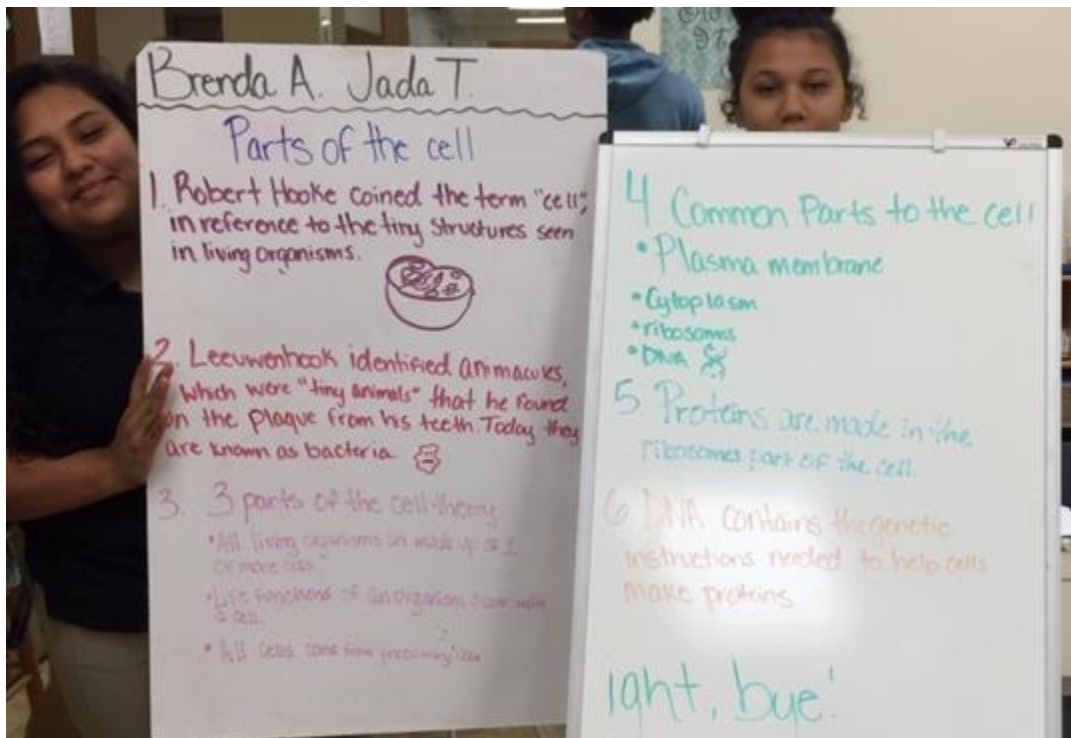 Brenda A. Jada T.
Parts of the cell
1. Robert Hooke coined the term "cell,"
in reference to the tiny structures seen
in living organisms.
2. Leeuwenhook identified
which were "tiny animals" that he found
on the plaque from his teeth. Today they
are known as bacteria
3. 3 parts of the cell theory
•All living organisms made up of 1
or more cells.
•Life functions of an organism occur within
a cell.
•All cells come from
4 Common Parts to the cell
•Plasma membrane
•Cytoplasm
•ribosomes
•DNA
5 Proteins are made in the
ribosomes part of the cell.
6 DNA contains the genetic
instructions needed to help cells
make proteins
ight, bye!